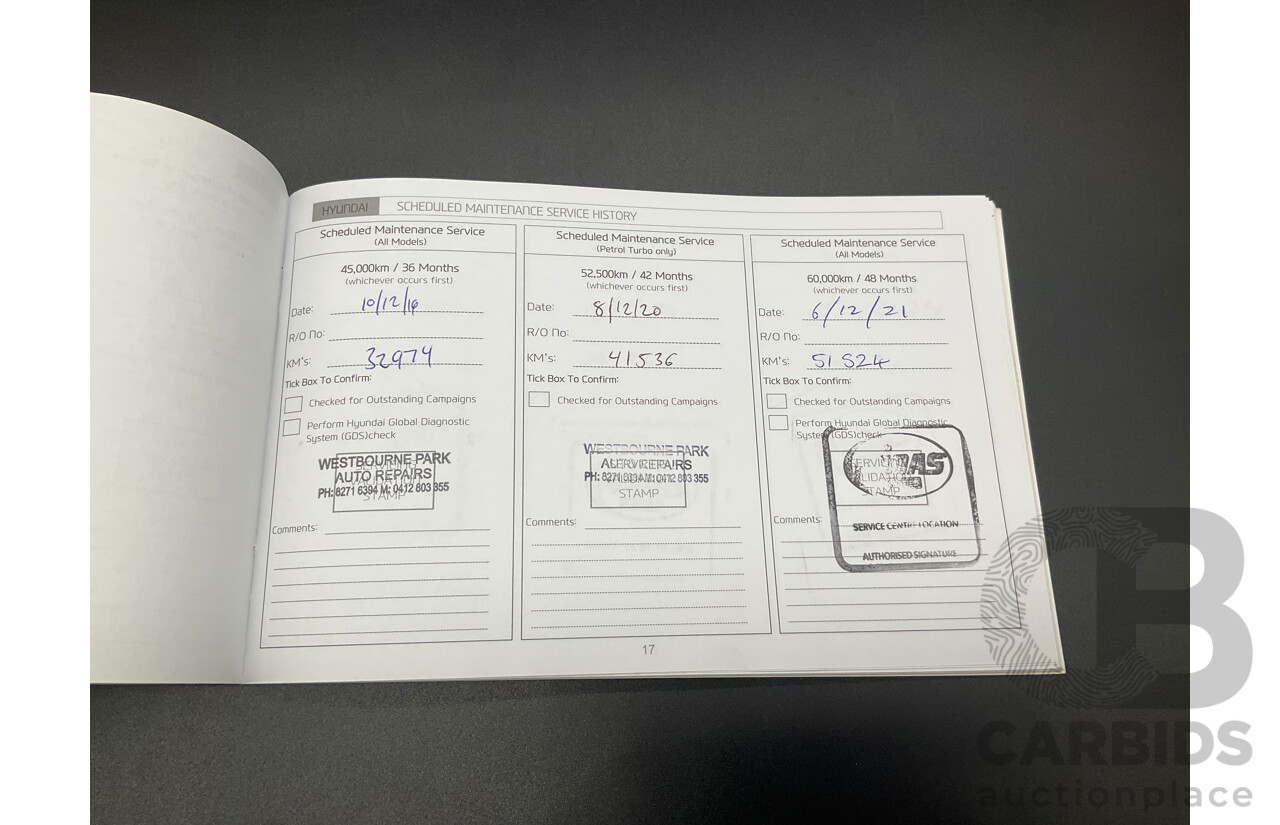 HYUNDAI SCHEDULED MAINTENANCE SERVICE HISTORY
Scheduled Maintenance Service
(All Models)
45,000km / 36 Months
(whichever occurs first)
Date: 10/12/16
R/O No:
KM's: 32974
Tick Box To Confirm:
Checked for Outstanding Campaigns
Perform Hyundai Global Diagnostic
System (GDS)check
WESTBOURNE PARK
AUTO REPAIRS
PH: 8271 6394 M: 0412 803 355
STAMP
Comments:
Scheduled Maintenance Service
(Petrol Turbo only)
52,500km / 42 Months
(whichever occurs first)
Date: 8/12/20
R/O No:
KM's: 41536
Tick Box To Confirm:
Checked for Outstanding Campaigns
WESTBOURNE PARK
REPAIRS
PH: 8271 6394 M: 0412 803 355
STAMP
Comments:
Scheduled Maintenance Service
(All Models)
60,000km / 48 Months
(whichever occurs first)
Date: 6/12/21
R/O No:
KM's: 51524
Tick Box To Confirm:
Checked for Outstanding Campaigns
Perform Hyundai Global Diagnostic
System (GDS)check
STAMP
Comments:
SERVICE CENTRE LOCATION
AUTHORISED SIGNATURE
17
CB
CARBIDS
auctionplace